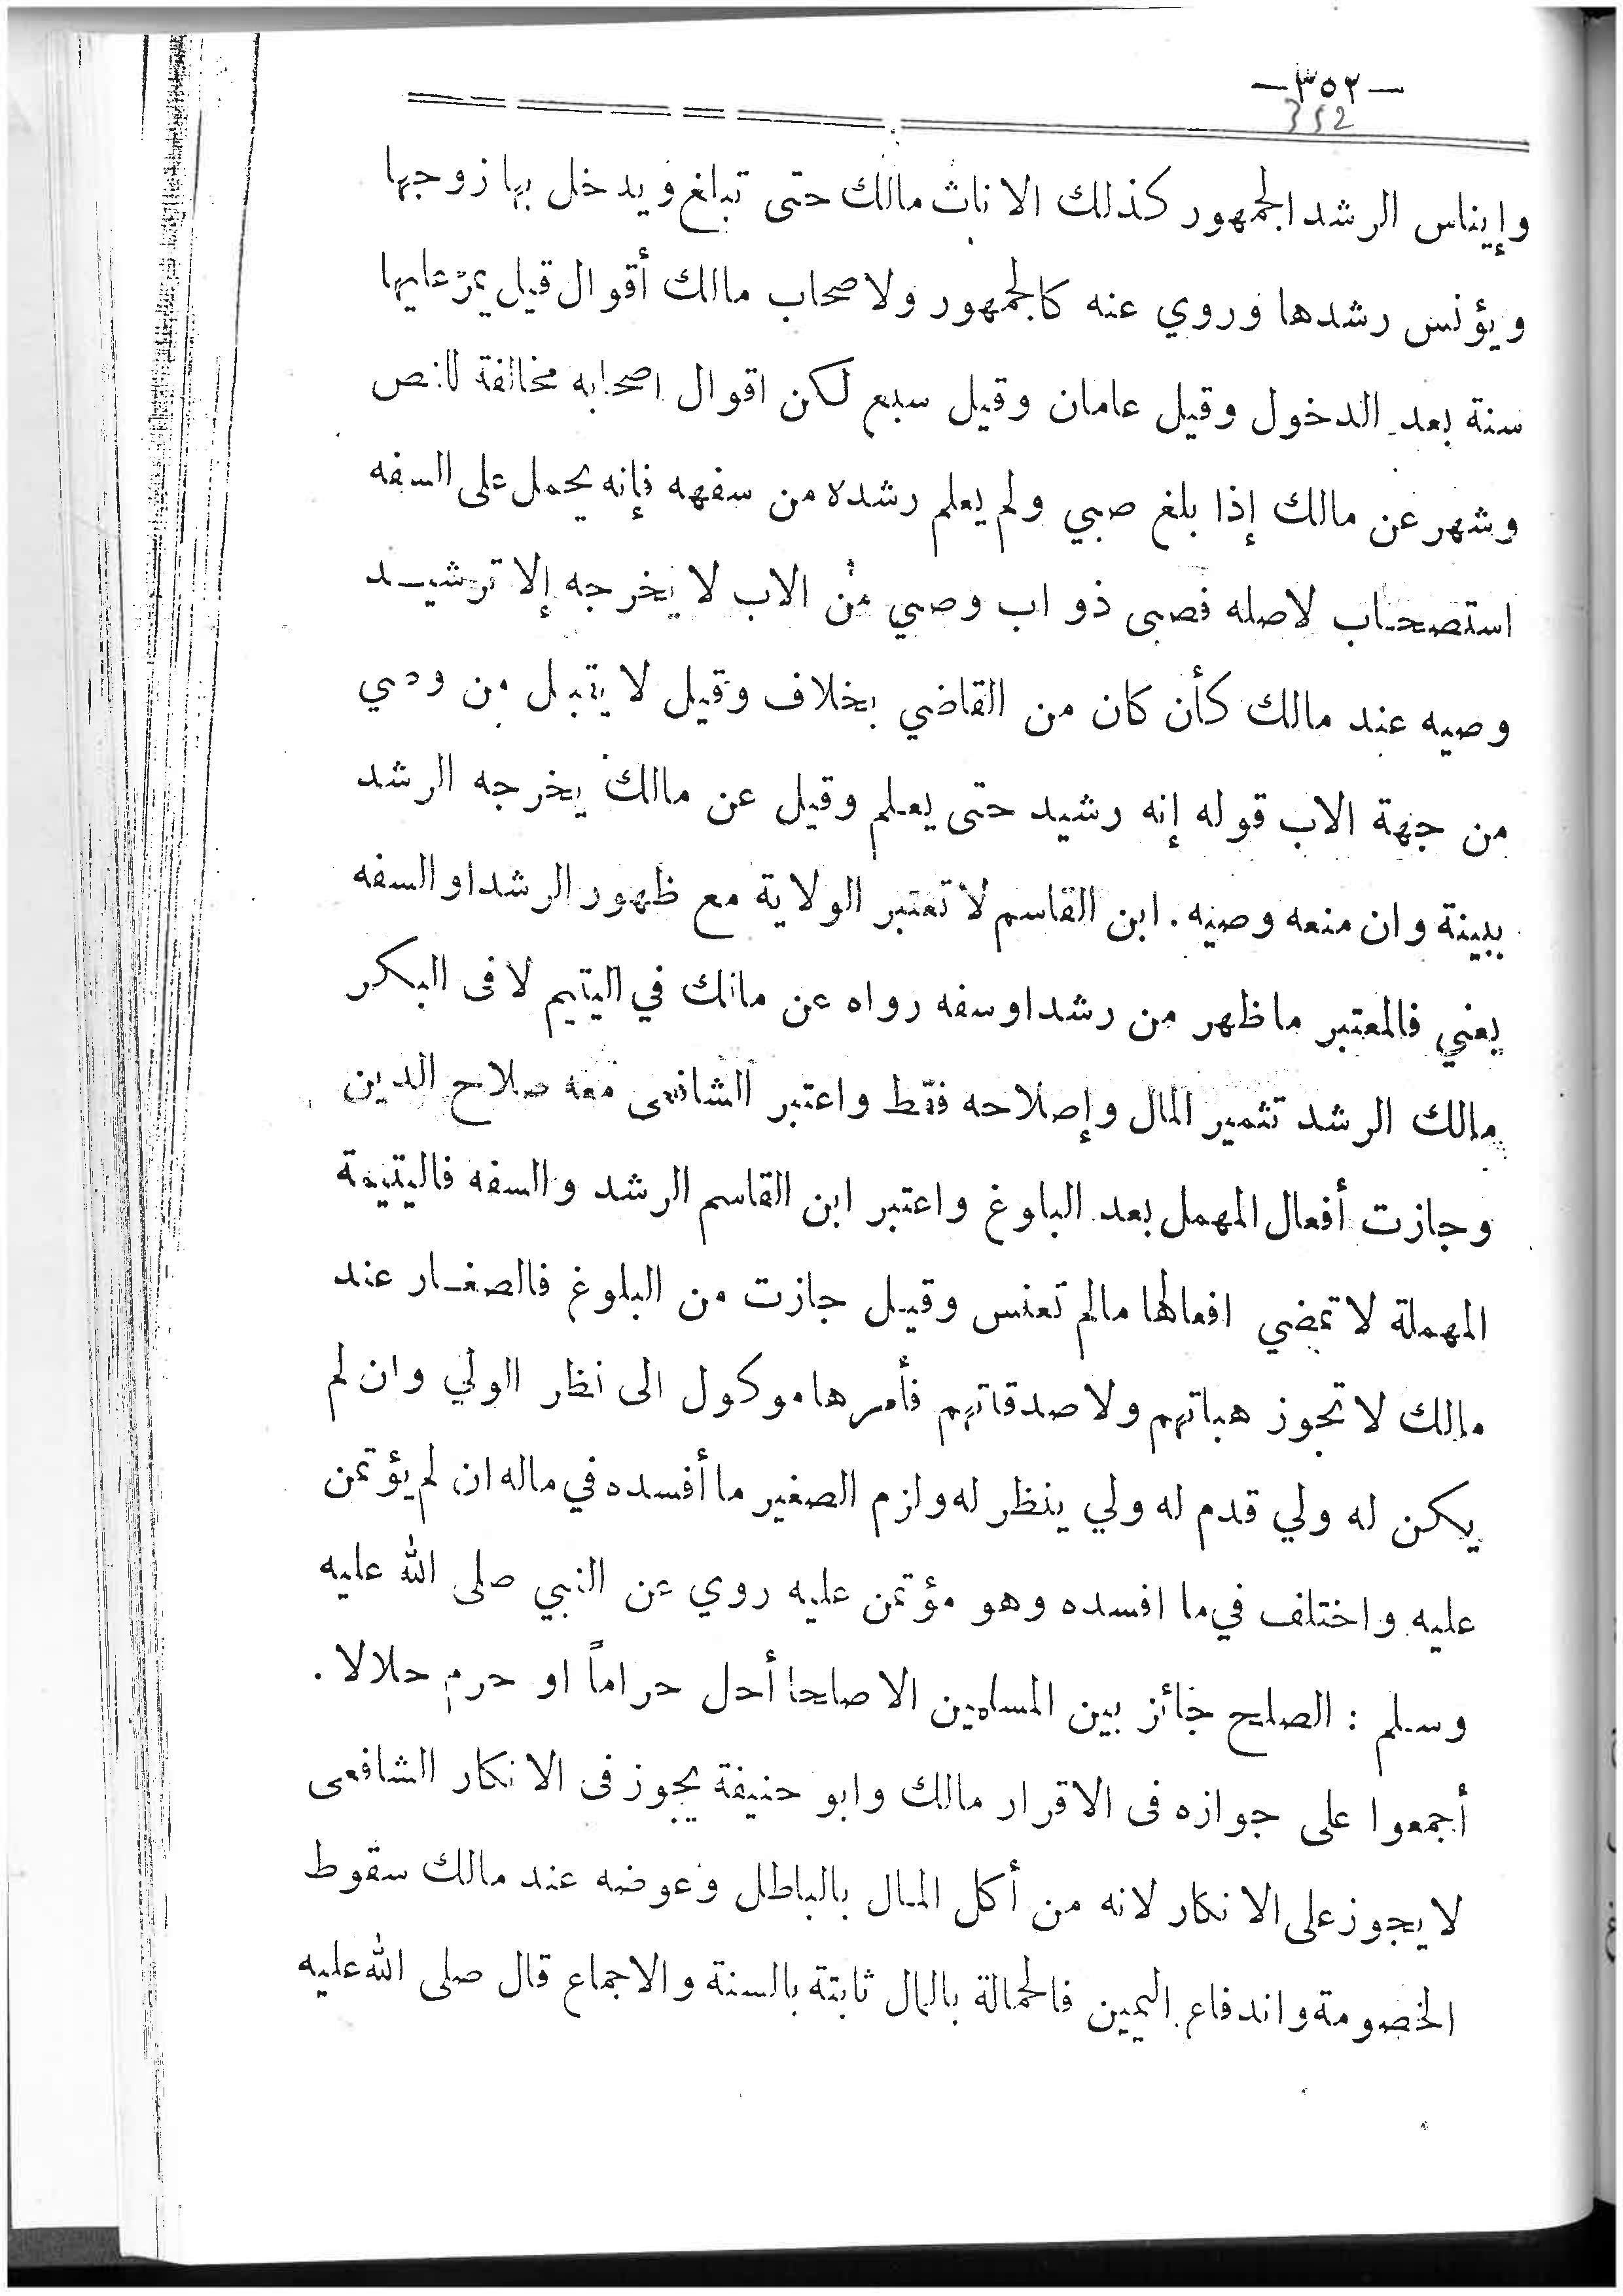 —٣٥٢—
352
وإيناس الرشد الجمهور كذلك الاناث مالك حتى تبلغ ويدخل بها زوجها
ويؤنس رشدها وروي عنه كالجمهور ولاصحاب مالك أقوال قيل يمرّ عليها
سنة بعد الدخول وقيل عامان وقيل سبع لكن اقوال اصحابه مخالفة للنص
وشهر عن مالك إذا بلغ صبي ولم يعلم رشده من سفهه فإنه يحمل على السفه
استصحاب لاصله فصبى ذو اب وصي من الاب لا يخرجه إلا ترشيد
وصيه عند مالك كأن كان من القاضي بخلاف وقيل لا يقبل من وصي
من جهة الاب قوله إنه رشيد حتى يعلم وقيل عن مالك يخرجه الرشد
ببينة وان منعه وصيه . ابن القاسم لا تعتبر الولاية مع ظهور الرشد او السفه
يعني فالمعتبر ما ظهر من رشد او سفه رواه عن مالك في اليتيم لا فى البكر
مالك الرشد تثمير المال وإصلاحه فقط واعتبر الشافعى معه صلاح الدين
وجازت أفعال المهمل بعد البلوغ واعتبر ابن القاسم الرشد والسفه فاليتيمة
المهملة لا تمضي افعالها مالم تعنس وقيل جازت من البلوغ فالصغار عند
مالك لا تجوز هباتهم ولا صدقاتهم فأمرها موكول الى نظر الولي وان لم
يكن له ولي قدم له ولي ينظر له ولزم الصغير ما أفسده في ماله ان لم يؤتمن
عليه واختلف في ما افسده وهو مؤتمن عليه روي عن النبي صلى الله عليه
وسلم : الصلح جائز بين المسلمين الا صلحا أحل حراماً او حرم حلالا .
أجمعوا على جوازه فى الاقرار مالك وابو حنيفة يجوز فى الانكار الشافعى
لا يجوز على الانكار لانه من أكل المال بالباطل وعوضه عند مالك سقوط
الخصومة واندفاع اليمين فالحمالة بالمال ثابتة بالسنة والاجماع قال صلى الله عليه